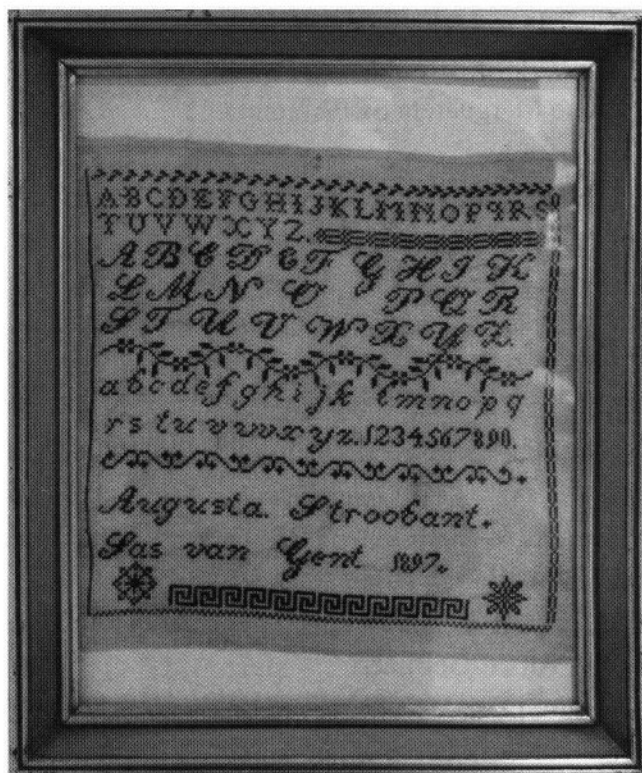 ABCDEFGHIJKLMNOPQRS
TUVWXYZ.
A B C D E F G H I K
L M N O P Q R
S T U V W X Y Z.
a b c d e f g h i j k l m n o p q
r s t u v w x y z. 1234567890.
Augusta. Stroobant.
Sas van Gent 1897.